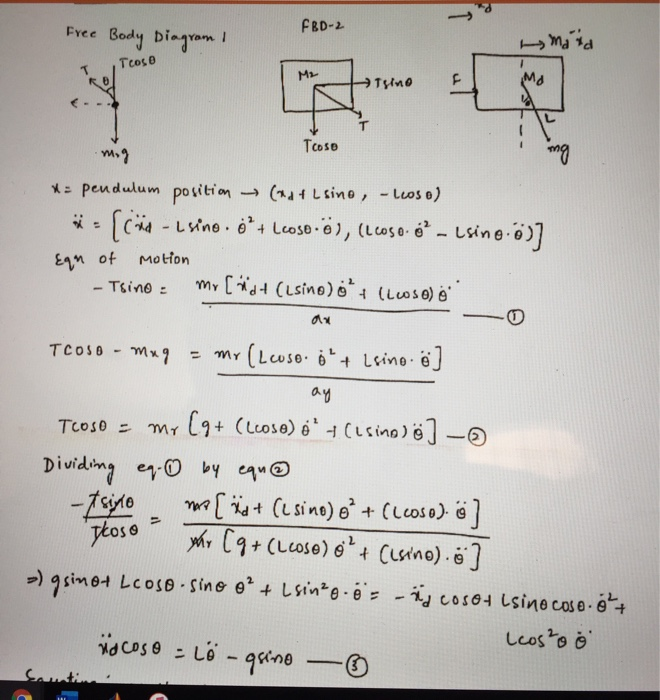 ẋd
Free Body Diagram 1
FBD-2
m_d ẍd
T Tcosθ
θ
M2
Tsinθ
F
Md
T
L
m₁g
Tcosθ
mg
x = pendulum position → (xd + Lsinθ, -Lcosθ)
ẍ = [(ẍd - Lsinθ·θ̇² + Lcosθ·θ̈), (Lcosθ·θ̇² - Lsinθ·θ̈)]
Eqn of Motion
- Tsinθ = mr [ẍd + (Lsinθ)θ̇² + (Lcosθ)θ̈
ax
— ①
Tcosθ - mrg = mr [Lcosθ·θ̇² + Lsinθ·θ̈]
ay
Tcosθ = mr [g + (Lcosθ)θ̇² + (Lsinθ)θ̈] — ②
Dividing eq-① by eqn②
-Tsinθ / Tcosθ = mr [ẍd + (Lsinθ)θ² + (Lcosθ)·θ̈] / mr [g + (Lcosθ)θ̇² + (Lsinθ)·θ̈]
=) gsinθ + Lcosθ·sinθ θ² + Lsin²θ·θ̈ = -ẍd cosθ + Lsinθcosθ·θ̇² +
Lcos²θ θ̈
ẍdcosθ = Lθ̈ - gsinθ — ③